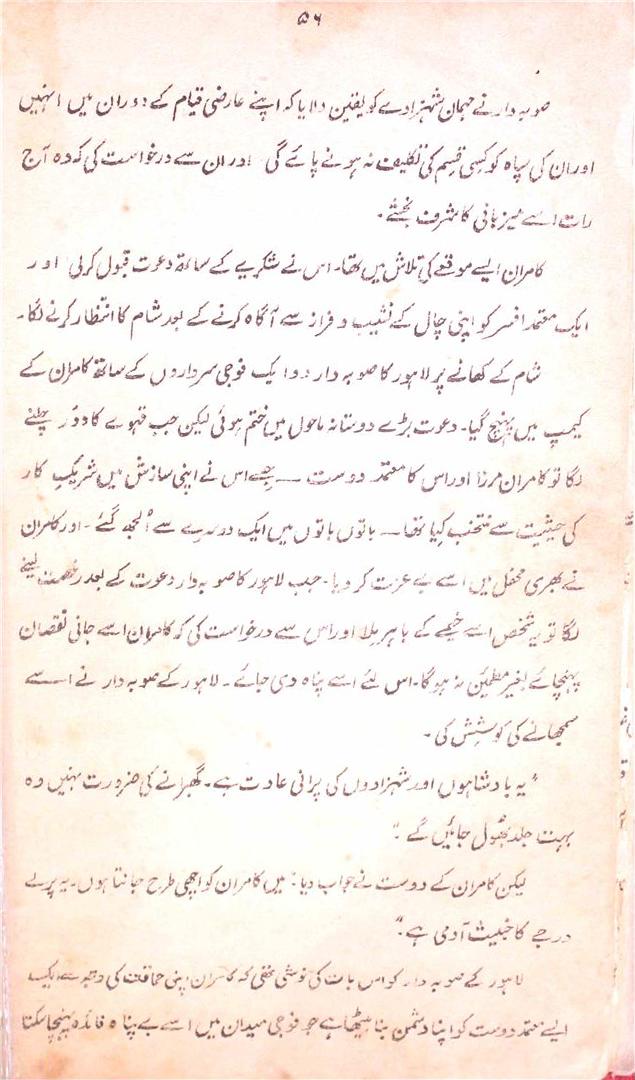 ۵۶
صوبہ دار نے مہمان شہزادے کو یقین دلایا کہ اپنے عارضی قیام کے دوران میں انہیں
اور ان کی سپاہ کو کسی قسم کی تکلیف نہ ہونے پائے گی اور ان سے درخواست کی کہ وہ آج
رات اسے میزبانی کا شرف بخشے۔
کامران ایسے موقعے کی تلاش میں تھا۔ اس نے شکریے کے ساتھ دعوت قبول کر لی اور
ایک معتمد افسر کو اپنی چال کے نشیب و فراز سے آگاہ کرنے کے بعد شام کا انتظار کرنے لگا۔
شام کے کھانے پر لاہور کا صوبہ دار دو ایک فوجی سرداروں کے ساتھ کامران کے
کیمپ میں پہنچ گیا۔ دعوت بڑے دوستانہ ماحول میں ختم ہوئی لیکن جب قہوے کا دور چلنے
لگا تو کامران مرزا اور اس کا معتمد دوست ــ جسے اس نے اپنی سازش میں شریکِ کار
کی حیثیت سے منتخب کیا تھا ــ باتوں باتوں میں ایک دوسرے سے اُلجھ گئے۔ اور کامران
نے بھری محفل میں اسے بے عزت کر دیا۔ جب لاہور کا صوبہ دار دعوت کے بعد رخصت لینے
لگا تو یہ شخص اسے خیمے کے باہر ملا اور اس سے درخواست کی کہ کامران اسے جانی نقصان
پہنچائے بغیر مطمئن نہ ہو گا۔ اس لئے اسے پناہ دی جائے۔ لاہور کے صوبہ دار نے اسے
سمجھانے کی کوشش کی۔
"یہ بادشاہوں اور شہزادوں کی پرانی عادت ہے۔ گھبرانے کی ضرورت نہیں وہ
بہت جلد بھول جائیں گے۔"
لیکن کامران کے دوست نے جواب دیا: "میں کامران کو اچھی طرح جانتا ہوں۔ یہ پرلے
درجے کا خبیث آدمی ہے۔"
لاہور کے صوبہ دار کو اس بات کی خوشی تھی کہ کامران اپنی حماقت کی وجہ سے ایک
ایسے معتمد دوست کو اپنا دشمن بنا بیٹھا ہے جو فوجی میدان میں اسے بے پناہ فائدہ پہنچا سکتا